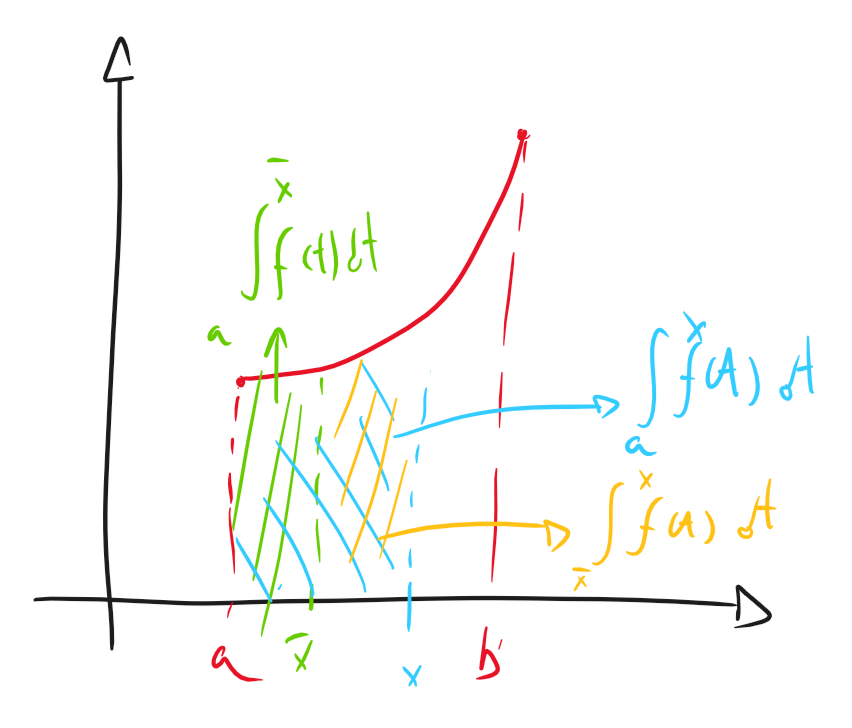 ∫ₐ^x̄ f(t) dt
∫ₐ^x f(t) dt
∫_x̄^x f(t) dt
a x̄ x b